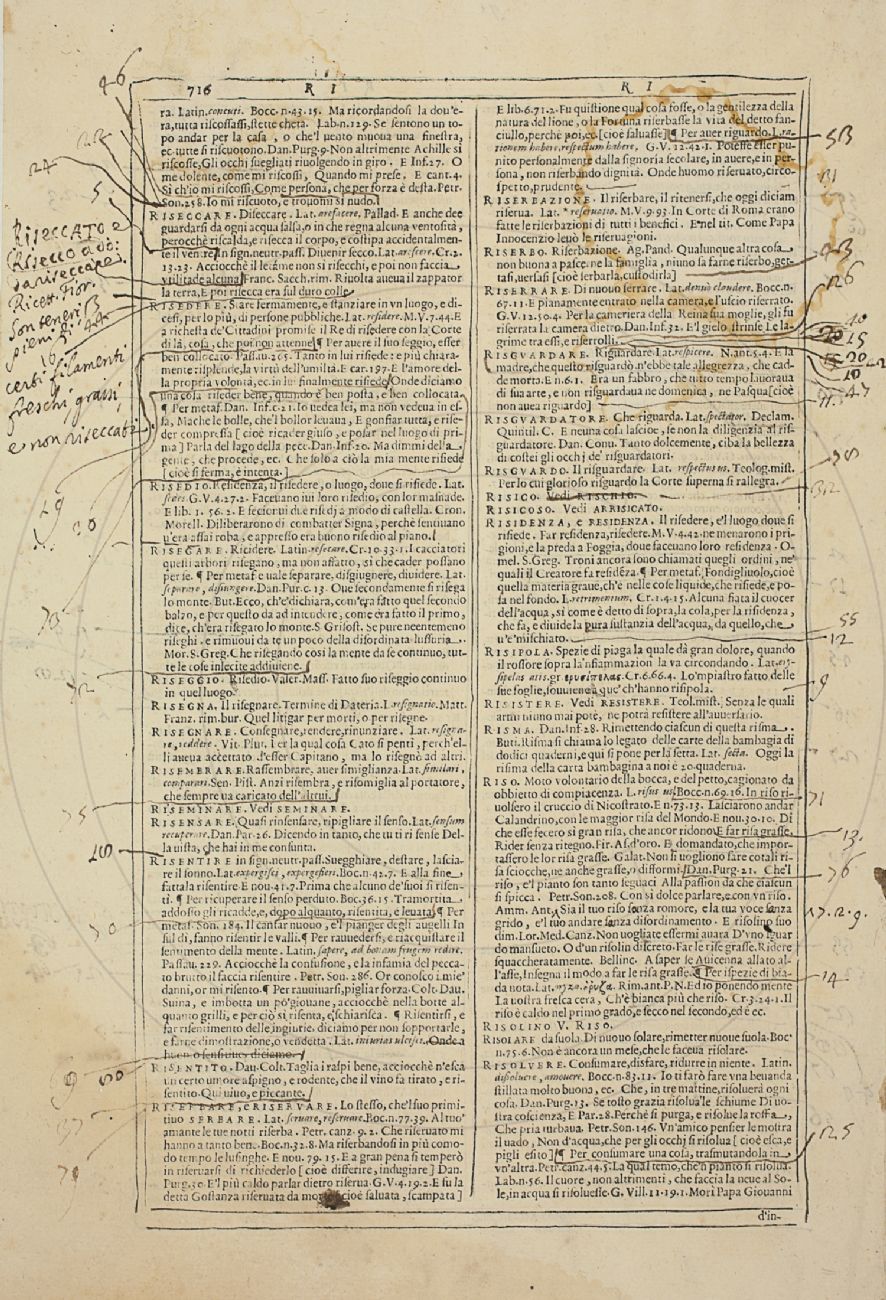 716
R I
ra. Latin. conuti. Bocc. n.43.15. Ma ricordandosi la dou'e-
ra, tutta riscossasi, stette cheta. Lab.n.129. Se sentono un to-
po andar per la casa, o che'l uento muoua una finestra,
ec. tutte si riscuotono. Dan. Purg. 9. Non altrimente Achille si
riscosse, Gli occhi suegliati riuolgendo in giro. E Inf.27. O
me dolente, come mi riscossi, Quando mi prese. E cant.4.
Sì ch'io mi riscossi, Come persona, che per forza è desta. Petr.
Son.258. Io mi riscuoto, e trouomi sì nudo.
RISECCARE. Diseccare. Lat. arefacere. Pallad. E anche dee
guardarsi da ogni acqua salsa, o in che regna alcuna ventosità,
perocchè riscalda, e risecca il corpo, e costipa accidentalmen-
te il ventre. In sign. neutr. pass. Diuenir secco. Lat. arescere. Cr.2.
13.23. Acciocchè il letame non si risecchi, e poi non faccia
vtilitade alcuna. Franc. Sacch. rim. Riuolta aueua il zappator
la terra, E poi risecca era sul duro colle
RISEDERE. Stare fermamente, e stanziare in vn luogo, e di-
cesi, per lo più, di persone pubbliche. Lat. residere. M.V.7.44. E
a richesta de'Cittadini promise il Re di risedere con la Corte
di là, cosa, che poi non attenne. ¶ Per auere il suo seggio, esser
ben collocato. Passau.205. Tanto in lui risede: e più chiara-
mente risplende, la virtù dell'umiltà. E car.197. E l'amore del-
la propria volontà, ec. in lui finalmente risiede. Onde diciamo
una cosa riseder bene, quando è ben posta, e ben collocata.
¶ Per metaf. Dan. Inf. c.21. Io uedea lei, ma non vedeua in es-
sa, Mache le bolle, che'l bollor leuaua, E gonfiar tutta, e rise-
der compressa [cioè ricader giuso, e posar nel luogo di pri-
ma] Parla del lago della pece. Dan. Inf.20. Ma dimmi della
gente, che procede, ec. Che solo a ciò la mia mente risiede
[cioè si ferma, è intenta.]
RISEDIO. Residenza, il risedere, o luogo, doue si risiede. Lat.
sedes. G.V.4.27.2. Faceuano iui loro risedio, con lor masnade.
E lib. 1. 56.2. E feciorui due risedj a modo di castella. Cron.
Morell. Diliberarono di combatter Signa, perchè sentiuano
u'era assai roba, e appresso era buono risedio al piano.
RISEGARE. Ricidere. Latin. resecare. Cr.10.33.1. I cacciatori
quelli arbori risegano, ma non affatto, sì che cader possano
per se. ¶ Per metaf. e uale separare, disgiugnere, diuidere. Lat.
separare, disiungere. Dan. Pur. c.13. Oue secondamente si risega
lo monte. But. Ecco, ch'e'dichiara, com'era fatto quel secondo
balzo, e per questo da ad intendere, come era fatto il primo,
dice, ch'era risegato lo monte. S. Grisost. Se pure neentemeno
riseghi, e rimuoui da te un poco della disordinata lussuria
Mor. S. Greg. Che risegando così la mente da se continuo, tut-
te le cose inlecite addiuiene.
RISEGGIO. Risedio. Valer. Mass. Fatto suo riseggio continuo
in quel luogo.
RISEGNA. Il risegnare. Termine di Dateria. L. resignatio. Matt.
Franz. rim. bur. Quel litigar per morti, o per risegne.
RISEGNARE. Consegnare, rendere, rinunziare. Lat. resigna-
re, reddere. Vit. Plut. Per la qual cosa Cato si penti, perch'el-
li aueua accettato d'esser Capitano, ma lo risegnò ad altri.
RISEMBRARE. Rassembrare, auer simiglianza. Lat. simulari,
comparari. Sen. Pist. Anzi risembra, e risomiglia al portatore,
che sempre ua caricato dell'altrui.
RISEMINARE. Vedi SEMINARE.
RISENSARE. Quasi rinsensare, ripigliare il senso. Lat. sensum
recuperare. Dan. Par.26. Dicendo in tanto, che tu ti risense Del-
la uista, che hai in me consunta.
RISENTIRE in sign. neutr. pass. Suegghiare, destare, lascia-
re il sonno. Lat. expergisci, expergefieri. Boc. n.42.7. E alla fine
fattala risentire. E nou.41.7. Prima che alcuno de'suoi si risen-
ti. ¶ Per ricuperare il senso perduto. Boc.36.15. Tramortita
addosso gli ricadde, e, dopo alquanto, risentita, e leuata. ¶ Per
metaf. Son.184. Il cantar nuouo, e'l pianger degli augelli In
sul dì, fanno risentir le valli. ¶ Per rauuedersi, e riacquistare il
sentimento della mente. Latin. sapere, ad bonam frugem redire.
Passau. 229. Acciocchè la confusione, e la infamia del pecca-
to brutto il faccia risentire. Petr. Son. 286. Or conosco i mie'
danni, or mi risento. ¶ Per rauuiuarsi, pigliar forza. Colt. Dau.
Suina, e imbotta un po'giouane, acciocchè nella botte al-
quanto grilli, e per ciò si risenta, e schiarisca. ¶ Risentirsi, e
far risentimento delle ingiurie. diciamo per non sopportarle,
e farne dimostrazione, o vendetta. Lat. iniurias ulcisci. Onde a
huom o sensitiuo diciamo.
RISENTITO. Dau. Colt. Taglia i raspi bene, acciocchè n'esca
un certo umore aspigno, e rodente, che il vino fa tirato, e ri-
sentito. Qui uiuo, e piccante.
RISERBARE, e RISERVARE. Lo stesso, che'l suo primi-
tiuo SERBARE. Lat. seruare, reseruare. Boc. n.77.39. Al tuo'
amante le tue notti riserba. Petr. canz.9.2. Che riseruato mi
hanno a tanto bene. Boc. n.32.8. Ma riserbandosi in più como-
do tempo le lusinghe. E nou. 79. 15. E a gran pena si temperò
in riseruarsi di richiederlo [cioè differire, indugiare] Dan.
Purg.30. E'l più caldo parlar dietro riserua. G.V.4.19.2. E fu la
detta Gostanza riseruata da morte [cioè saluata, scampata]
R I
E lib.6.71.2. Fu quistione qual cosa fosse, o la gentilezza della
natura del lione, o la Fortuna riserbasse la vita del detto fan-
ciullo, perchè poi, ec. [cioè saluasse] ¶ Per auer riguardo. L. ra-
tionem habere, respectum habere. G.V.12.42.1. Potesse esser pu-
nito personalmente dalla signoria secolare, in auere, e in per-
sona, non riserbando dignità. Onde huomo riseruato, circo-
spetto, prudente.
RISERBAZIONE. Il riserbare, il ritenersi, che oggi diciam
riserua. Lat. * reseruatio. M.V.9.93. In Corte di Roma erano
fatte le riserbazioni di tutti i benefici. E nel tit. Come Papa
Innocenzio leuò le riseruagioni.
RISERBO. Riserbazione. Ag. Pand. Qualunque altra cosa
non buona a pascere la famiglia, niuno sa farne riserbo, get-
tasi, uersasi [cioè serbarla, custodirla]
RISERRARE. Di nuouo serrare. Lat. denuò claudere. Bocc. n.
67.11. E pianamente entrato nella camera, e l'uscio riserrato.
G.V.12.50.4. Per la cameriera della Reina sua moglie, gli fu
riserrata la camera dietro. Dan. Inf.32. E'l gielo strinse Le la-
grime tra essi, e riserrolli.
RISGVARDARE. Riguardare. Lat. respicere. N.ant.5.4. E la
madre, che questo risguardò, n'ebbe tale allegrezza, che cad-
de morta. E n.6.1. Era un fabbro, che tutto tempo lauoraua
di sua arte, e non risguardaua ne domenica, ne Pasqua [cioè
non auea riguardo]
RISGVARDATORE. Che riguarda. Lat. spectator. Declam.
Quintil. C. E neuna cosa lascioe, se non la diligenzia al ris-
guardatore. Dan. Conu. Tanto dolcemente, ciba la bellezza
di costei gli occhj de'risguardatori.
RISGVARDO. Il risguardare. Lat. respectus us. Teolog. mist.
Per lo cui glorioso risguardo la Corte superna si rallegra.
RISICO. Vedi RISCHIO.
RISICOSO. Vedi ARRISICATO.
RISIDENZA, e RESIDENZA. Il risedere, e'l luogo doue si
risiede. Far residenza, risedere. M.V.4.42. ne menarono i pri-
gioni, e la preda a Foggia, doue faceuano loro residenza. O-
mel. S. Greg. Troni ancora sono chiamati quegli ordini, ne'
quali il Creatore fa residēza. ¶ Per metaf. Fondigliuolo, cioè
quella materia graue, ch'è nelle cose liquide, che risiede, e po-
sa nel fondo. L. retrimentum. Cr.1.4.15. Alcuna fiata il cuocer
dell'acqua, sì come è detto di sopra, la cola, per la risidenza,
che fa, e diuide la pura sustanzia dell'acqua, da quello, che
u'e'mischiato.
RISIPOLA. Spezie di piaga la quale dà gran dolore, quando
il rossore sopra la'nfiammazion la va circondando. Lat. eri-
sipelas atis. gr. ἐρυσίπελας. Cr.6.66.4. Lo'mpiastro fatto delle
sue foglie, souuiene a que' ch'hanno risipola.
RISISTERE. Vedi RESISTERE. Teol. mist. Senza le quali
armi niuno mai potè, ne potrà resistere all'auuersario.
RISMA. Dan. Inf.28. Rimettendo ciascun di questa risma
Buti. Risma si chiama lo legato delle carte della bambagia di
dodici quaderni, e qui si pone per la setta. Lat. secta. Oggi la
risma della carta bambagina a noi è 20. quaderna.
RISO. Moto volontario della bocca, e del petto, cagionato da
obbietto di compiacenza. L. risus us. Bocc. n.69.16. In riso ri-
uolsero il cruccio di Nicostrato. E n.73.13. Lasciarono andar
Calandrino, con le maggior risa del Mondo. E nou.30.10. Di
che esse fecero sì gran risa, che ancor ridono. E far risa grasse.
Rider senza ritegno. Fir. As. d'oro. E domandato, che impor-
tassero le lor risa grasse. Galat. Non si uogliono fare cotali ri-
sa sciocche, ne anche grasse, o difformi. Dan. Purg.21. Che'l
riso, e'l pianto son tanto seguaci Alla passion da che ciascun
si spicca. Petr. Son.208. Con sì dolce parlare, e con vn riso.
Amm. Ant. Sia il tuo riso sanza romore, e la tua voce sanza
grido, e'l tuo andare sanza disordinamento. E risolino suo
dim. Lor. Med. Canz. Non uogliate essermi auara D'vno sguar
do mansueto. O d'un risolin discreto. Far le rise grasse. Ridere
squaccheratamente. Bellinc. A saper le Auicenna allato al-
l'asse, Insegna il modo a far le risa grasse. ¶ Per ispezie di bia-
da nota. Lat. oryza. ὄρυζα. Rim. ant. P.N. Ed io ponendo mente
La uostra fresca cera, Ch'è bianca più che riso. Cr.3.24.1. Il
riso è caldo nel primo grado, e secco nel secondo, ed è ec.
RISOLINO V. RISO.
RISOLARE da suola. Di nuouo solare, rimetter nuoue suola. Boc'
n.75.6. Non è ancora un mese, che le faceua risolare.
RISOLVERE. Consumare, disfare, ridurre in niente. Latin.
dissoluere, amouere. Bocc. n.83.11. Io ti farò fare vna beuanda
stillata molto buona, ec. Che, in tre mattine, risoluerà ogni
cosa. Dan. Purg.13. Se tosto grazia risolua'le schiume Di uo-
stra coscienza, E Par.28. Perchè si purga, e risolue la roffa
Che pria turbaua. Petr. Son.146. Vn'amico pensier le mostra
il uado, Non d'acqua, che per gli occhi si risolua [cioè esca, e
pigli esito] ¶ Per consumare una cosa, trasmutandola in
vn'altra. Petr. canz.44.5. La qual temo, che'n pianto si risolua.
Lab. n.56. Il cuore, non altrimenti, che faccia la neue al So-
le, in acqua si risoluesse. G. Vill.11.19.1. Morì Papa Giouanni
d'in-
46
22
24
5
RISECCATO e
RISECCO add:
da riseccare.
Ricet. Fior.
certi filamenti
freschi, grassi,
e non riseccati
5B
126
15
20
10
47
55
12
9
71
13.
76
17.2.9.
14
125
70